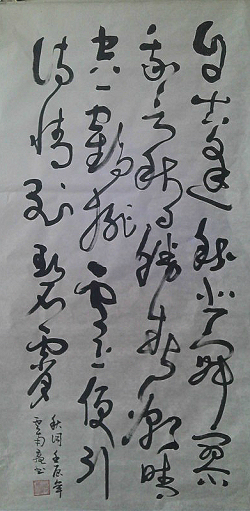 自古逢秋悲寂寥
我言秋日胜春朝晴
空一鹤排云上便引
诗情到碧霄
秋词 壬辰年